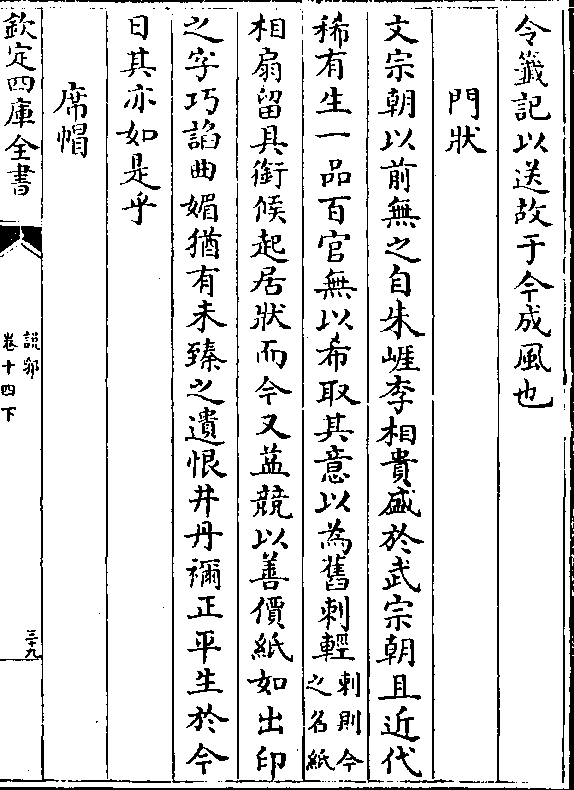 令籖記以送故于今成風也
門狀
文宗朝以前無之自朱崖李相貴盛於武宗朝且近代
稀有生一品百官無以希取其意以為舊刺輕刺則今之名紙
相扇留具銜候起居狀而今又葢競以善價紙如出印
之字巧諂曲媚猶有未臻之遺恨井丹禰正平生於今
日其亦如是乎
席帽
欽定四庫全書
說郛
卷十四下
三十九